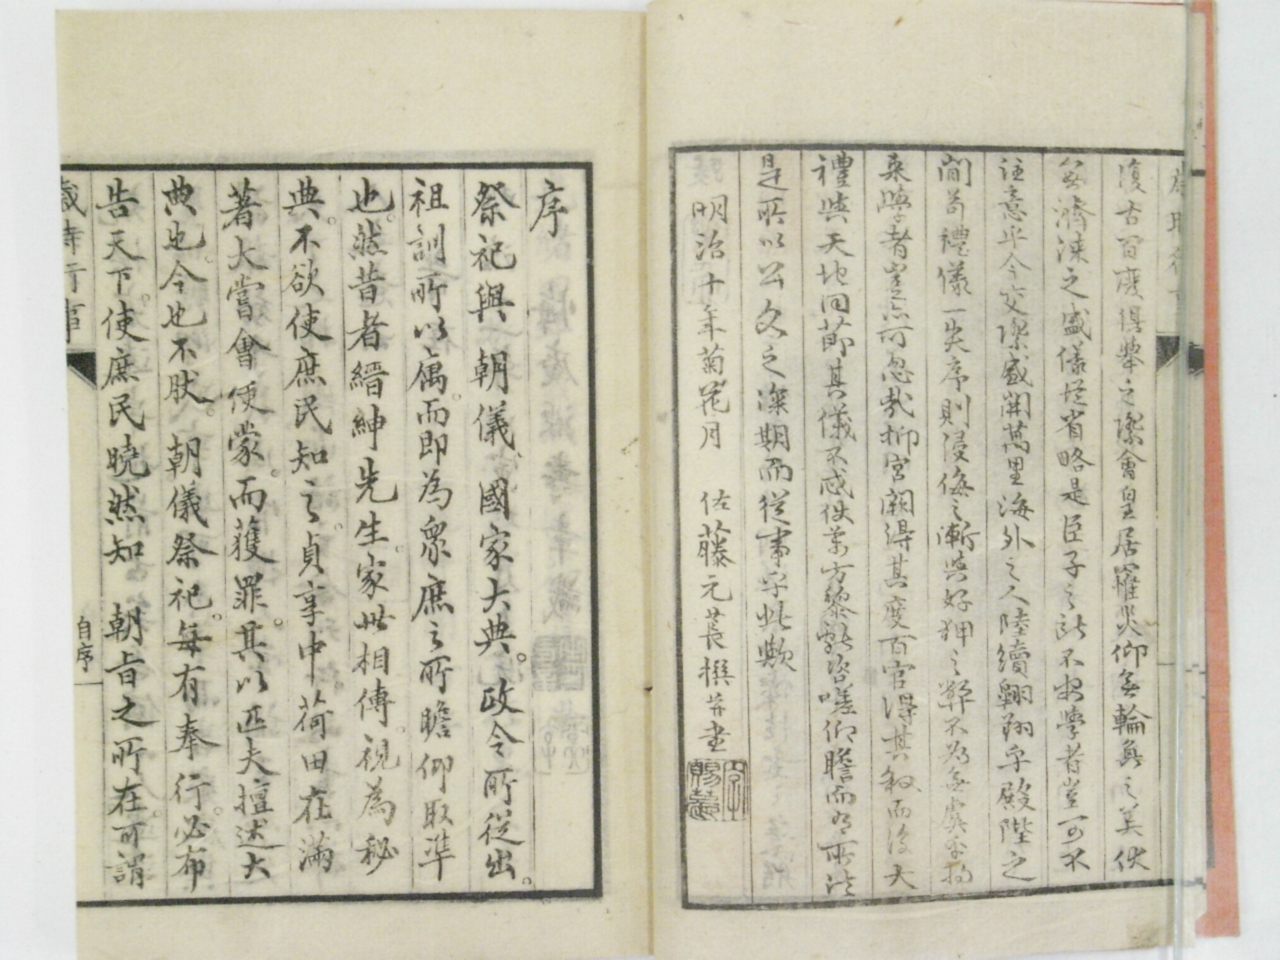 復古百度俱擧之際會皇居羅災仰無輪奐之美伏
無濟濟之盛儀從省略是臣子之所不安學者豈可不
注意乎今交際盛開萬里海外之人陸續翺翔乎殿陛之
間苟禮儀一失序則侵侮之漸與好狎之弊不爲無
來學者寔不可忽哉抑宮闕得其度百官得其敘而後大
禮與天地同節其儀不忒使萬方黎獻咨嗟仰瞻而有所法
是所以公文之深期而從事乎此歟
明治十年菊花月 佐藤元萇撰并書
序
祭祀與 朝儀國家大典。政令所從出。
祖訓所以寓。而即為衆庶之所瞻仰取準
也。然昔者縉紳先生。家世相傳。視為秘
典。不欲使庶民知之。貞享中荷田在滿
著大嘗會便蒙。而獲罪。其以匹夫擅述大
典也。今也不肰。朝儀祭祀。每有奉行。必布
告天下。使庶民曉然知 朝旨之所在。可謂
歲時行事
自序